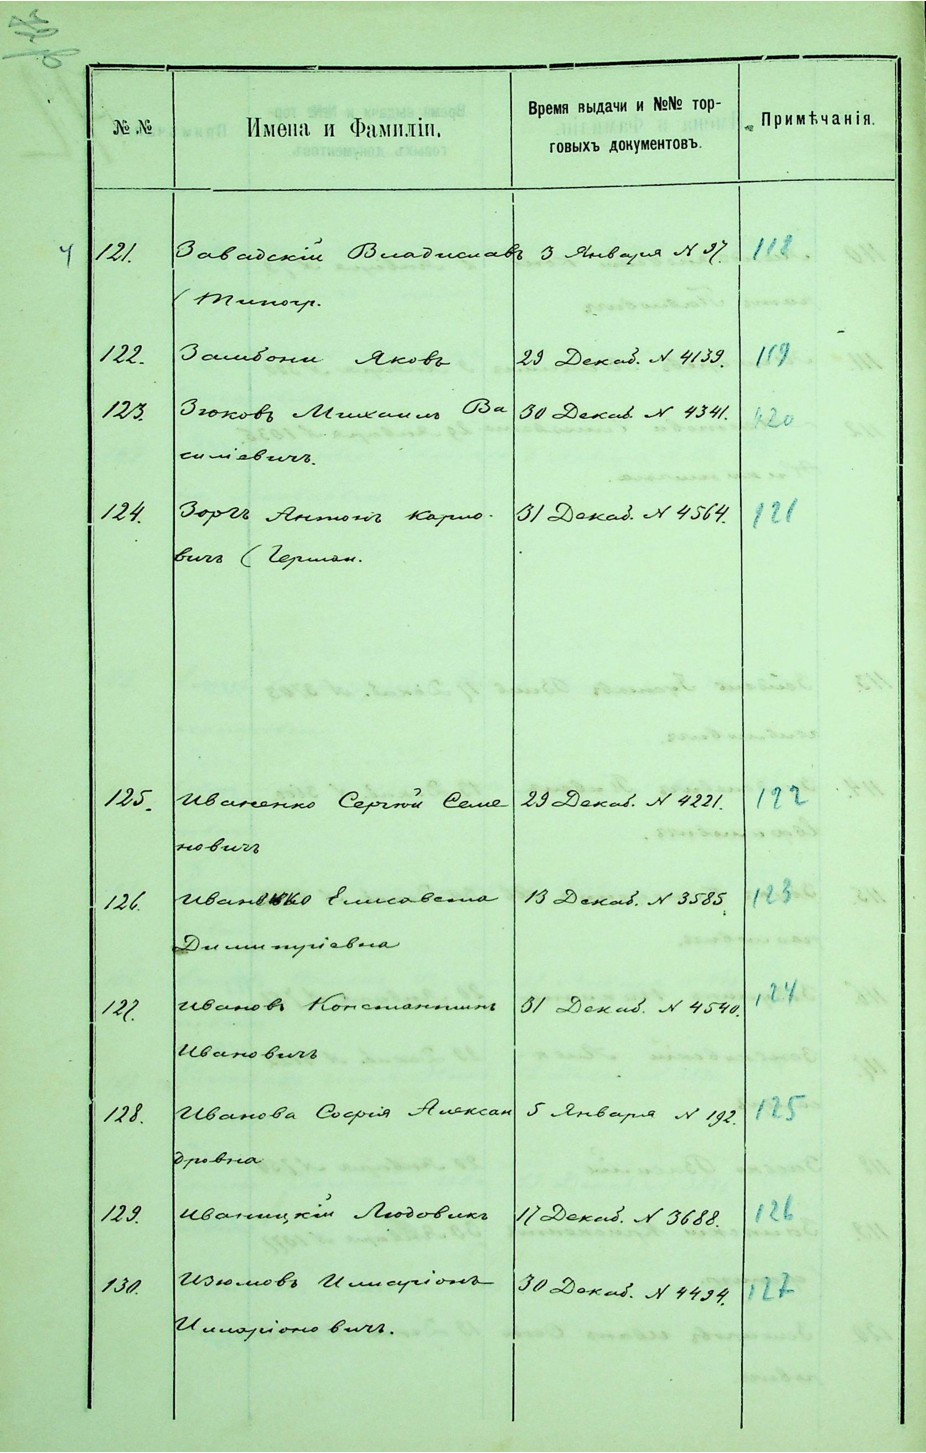 № №
Имена и Фамиліи.
Время выдачи и №№ тор-
говыхъ документовъ.
Примѣчанія.
121. Завадскій Владиславъ 3 Января N 97. 118
(Типогр.
122. Замбони Яковъ 29 Декаб. N 4139. 119
123. Зюковъ Михаилъ Ва 30 Декаб. N 4341. 120
силіевичъ.
124. Зоргъ Антонъ Карло- 31 Декаб. N 4564. 121
вичъ (Герман.
125. Иваненко Сергѣй Семе 29 Декаб. N 4221. 122
новичъ
126. Иваненко Елисавета 13 Декаб. N 3585. 123
Димитріевна
127. Ивановъ Константинъ 31 Декаб. N 4540. 124
Ивановичъ
128. Иванова Софія Алексан 5 Января N 192. 125
дровна
129. Иваницкій Людовикъ 17 Декаб. N 3688. 126
130. Изюмовъ Иларіонъ 30 Декаб. N 4494. 127
Иларіоновичъ.